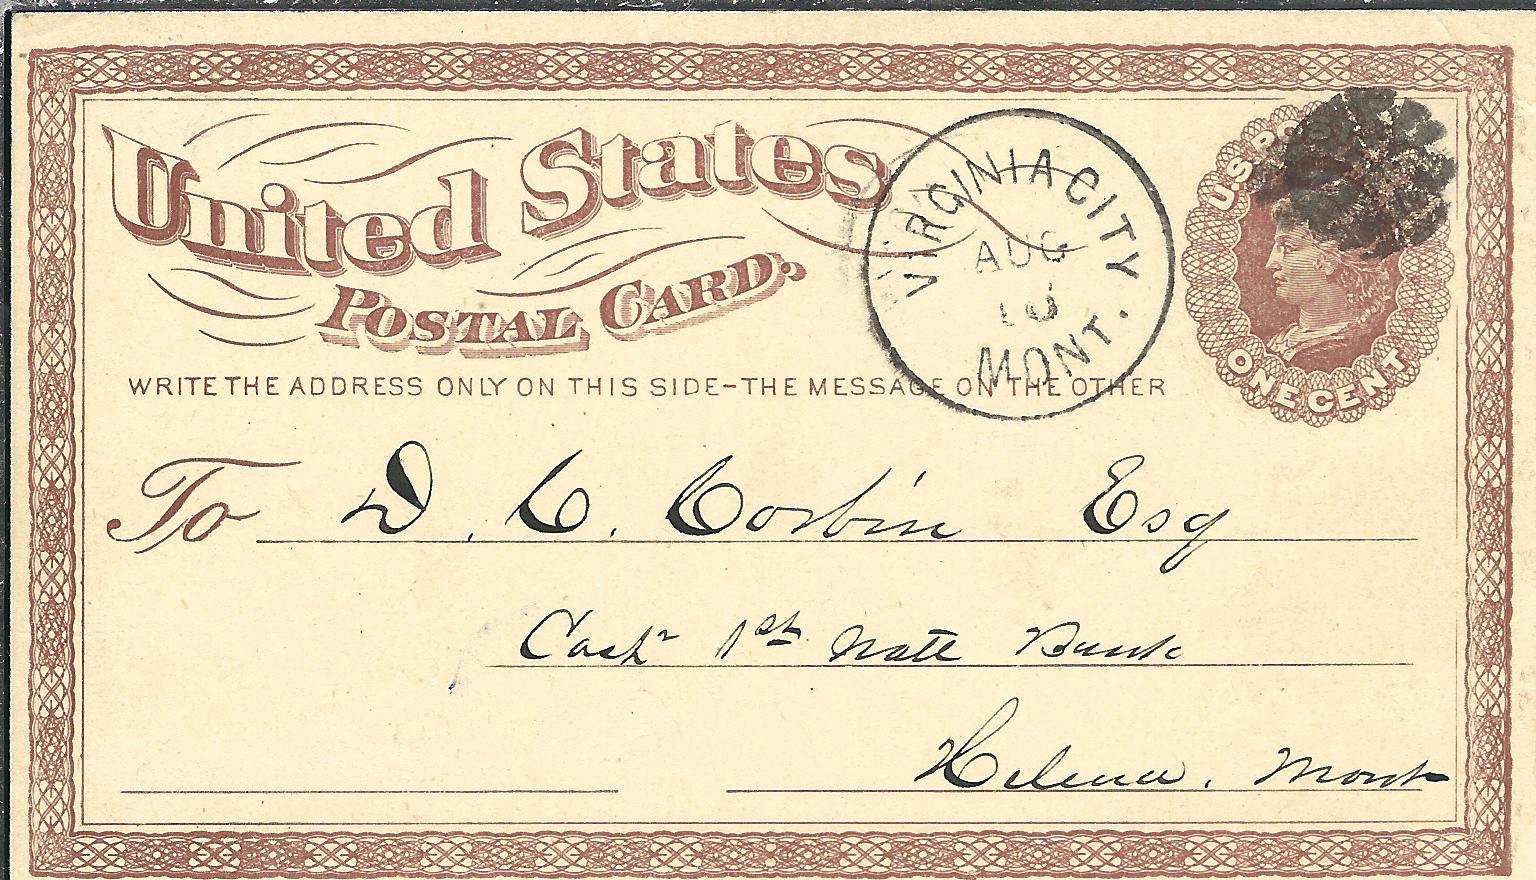 United States
POSTAL CARD.
U.S. POSTAGE
ONE CENT
VIRGINIA CITY
AUG
MONT.
WRITE THE ADDRESS ONLY ON THIS SIDE-THE MESSAGE ON THE OTHER
To D. C. Corbin Esq
Cashr 1st Natl Bank
Helena, Mont